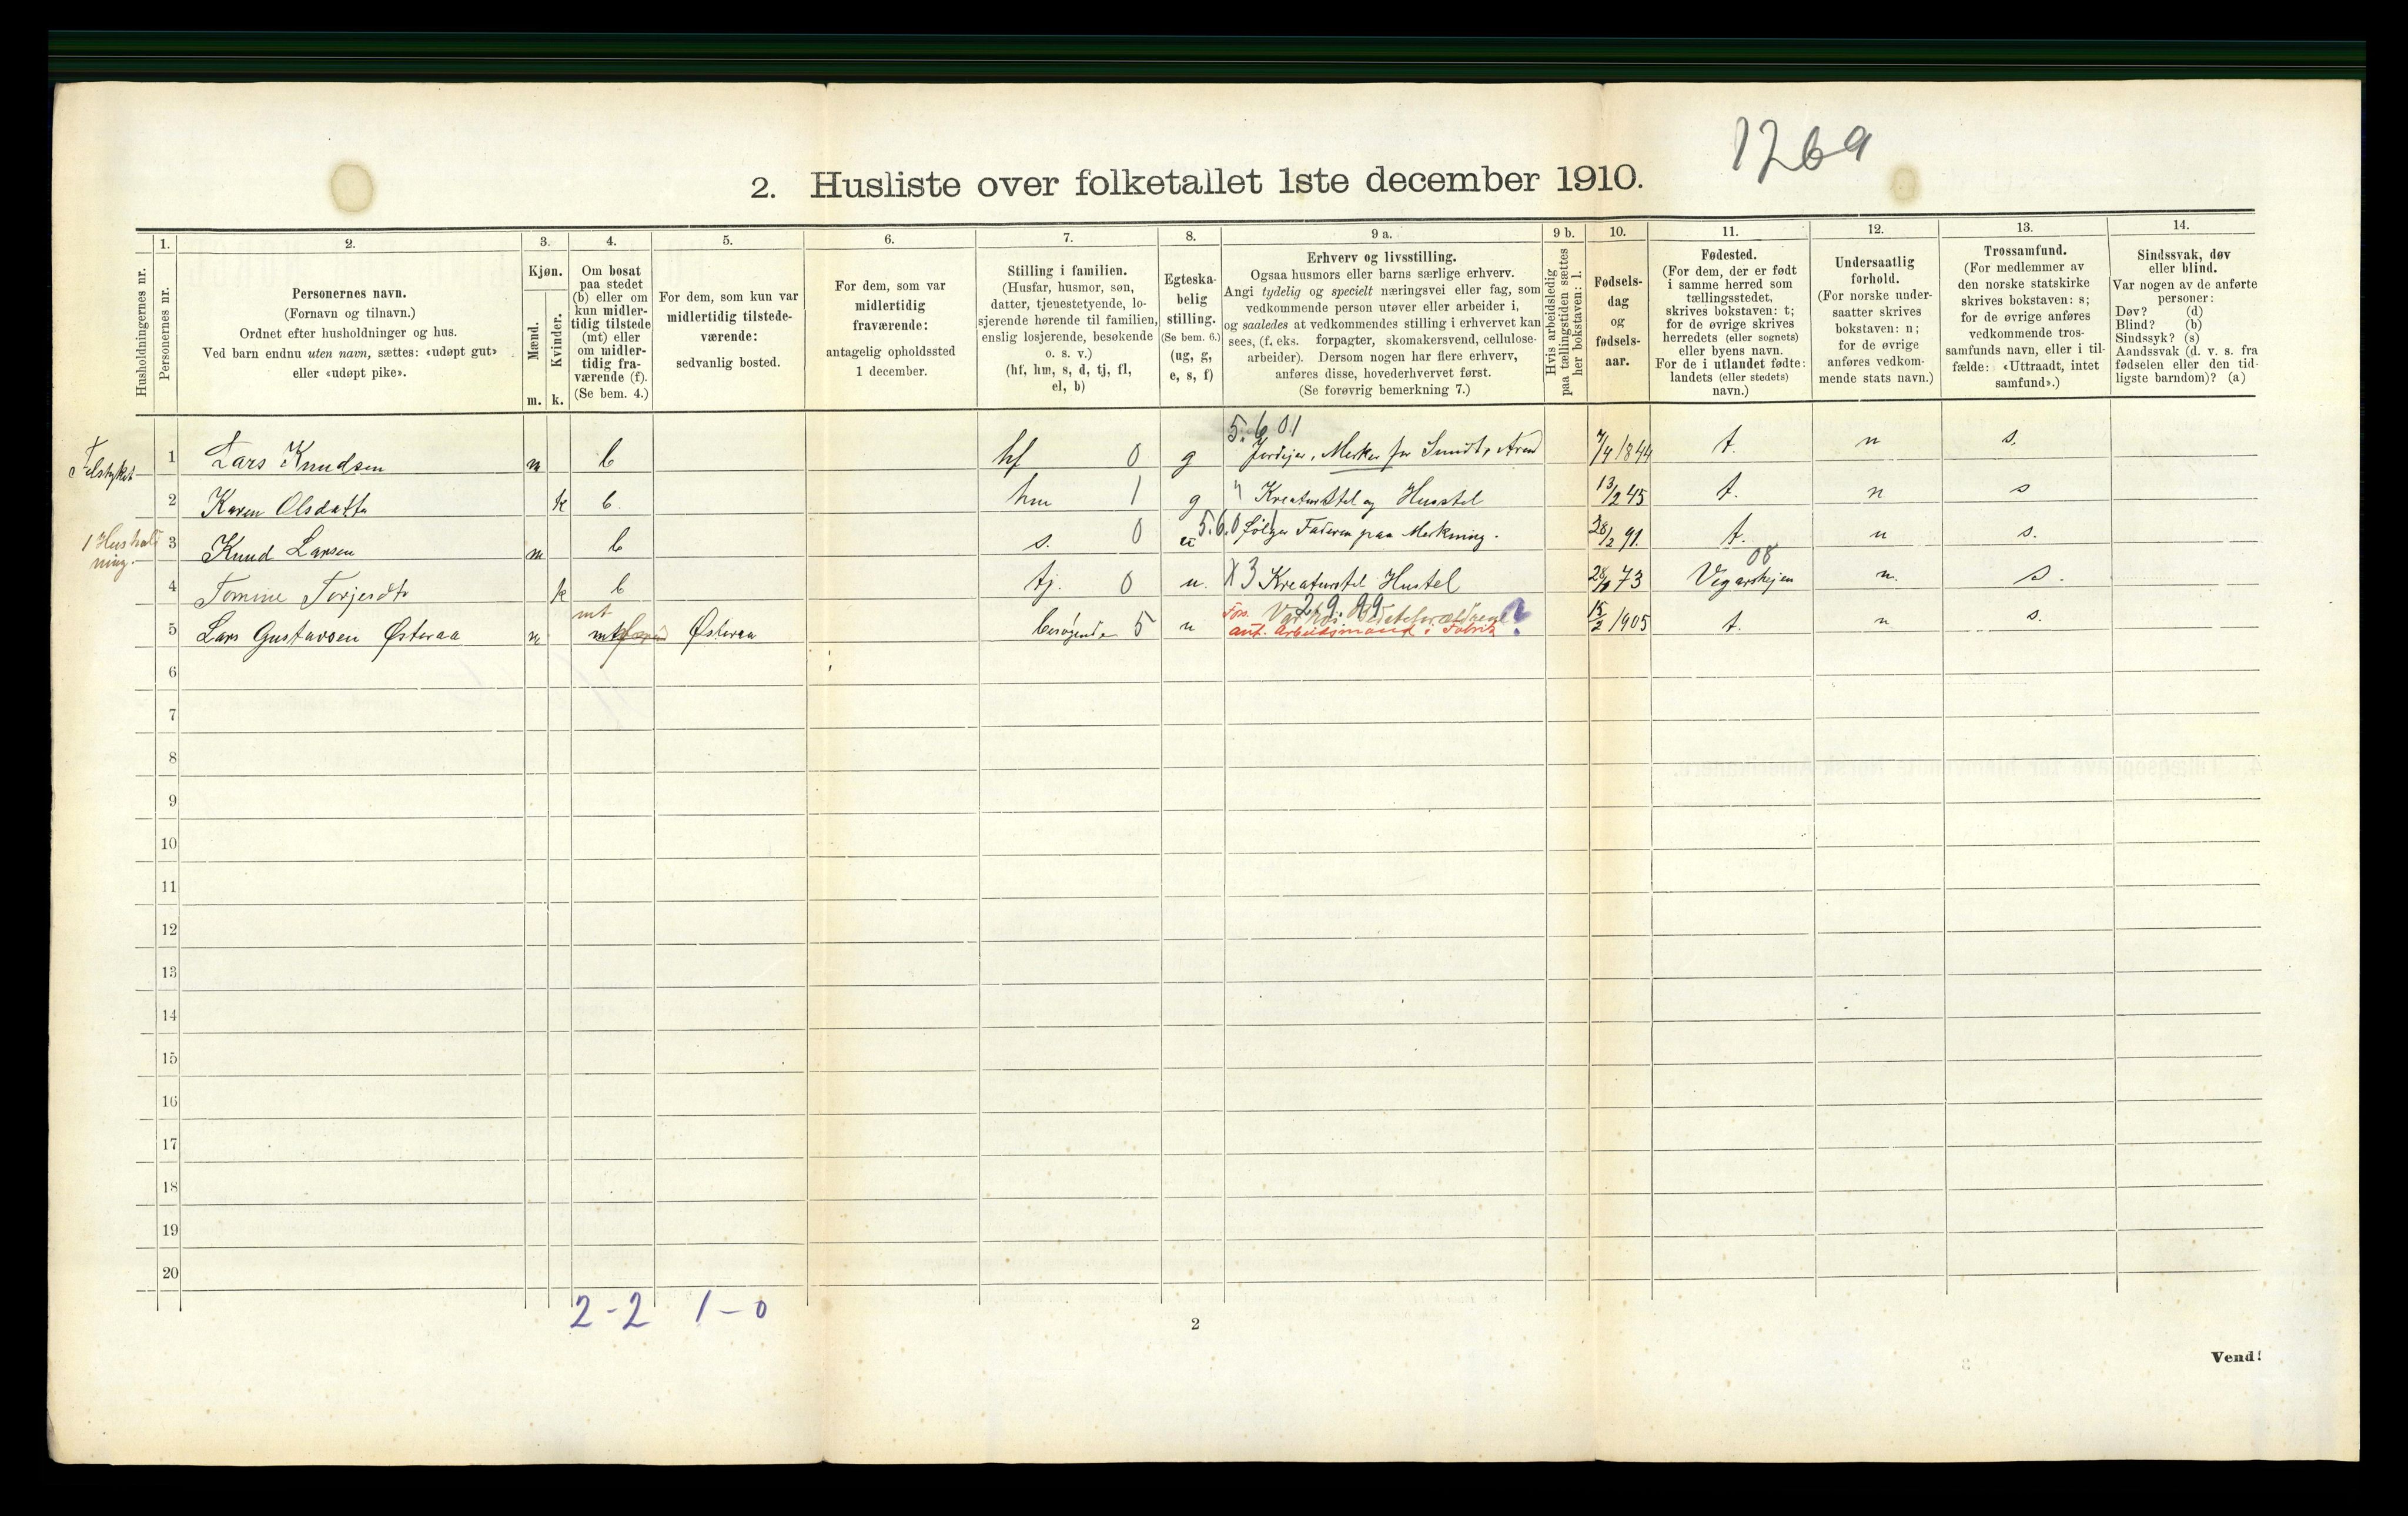 1269
2. Husliste over folketallet 1ste december 1910.
Husholdningernes nr.
1.
Personernes nr.
2.
Personernes navn.
(Fornavn og tilnavn.)
Ordnet efter husholdninger og hus.
Ved barn endnu uten navn, sættes: «udøpt gut»
eller «udøpt pike».
3.
Kjøn.
Mænd.
Kvinder.
m. k.
4.
Om bosat
paa stedet
(b) eller om
kun midler-
tidig tilstede
(mt) eller
om midler-
tidig fra-
værende (f).
(Se bem. 4.)
5.
For dem, som kun var
midlertidig tilstede-
værende:
sedvanlig bosted.
6.
For dem, som var
midlertidig
fraværende:
antagelig opholdssted
1 december.
7.
Stilling i familien.
(Husfar, husmor, søn,
datter, tjenestetyende, lo-
sjerende hørende til familien,
enslig losjerende, besøkende
o. s. v.)
(hf, hm, s, d, tj, fl,
el, b)
8.
Egteska-
belig
stilling.
(Se bem. 6.)
(ug, g,
e, s, f)
9 a.
Erhverv og livsstilling.
Ogsaa husmors eller barns særlige erhverv.
Angi tydelig og specielt næringsvei eller fag, som
vedkommende person utøver eller arbeider i,
og saaledes at vedkommendes stilling i erhvervet kan
sees, (f. eks. forpagter, skomakersvend, cellulose-
arbeider). Dersom nogen har flere erhverv,
anføres disse, hovederhvervet først.
(Se forøvrig bemerkning 7.)
9 b.
Hvis arbeidsledig
paa tællingstiden sættes
her bokstaven: l.
10.
Fødsels-
dag
og
fødsels-
aar.
11.
Fødested.
(For dem, der er født
i samme herred som
tællingsstedet,
skrives bokstaven: t;
for de øvrige skrives
herredets (eller sognets)
eller byens navn.
For de i utlandet fødte:
landets (eller stedets)
navn.)
12.
Undersaatlig
forhold.
(For norske under-
saatter skrives
bokstaven: n;
for de øvrige
anføres vedkom-
mende stats navn.)
13.
Trossamfund.
(For medlemmer av
den norske statskirke
skrives bokstaven: s;
for de øvrige anføres
vedkommende tros-
samfunds navn, eller i til-
fælde: «Uttraadt, intet
samfund».)
14.
Sindssvak, døv
eller blind.
Var nogen av de anførte
personer:
Døv? (d)
Blind? (b)
Sindssyk? (s)
Aandssvak (d. v. s. fra
fødselen eller den tid-
ligste barndom)? (a)
5.6.01
1 Lars Knudsen m b hf 0 g Jordejer, Merker for 7/4 1844 t. n s.
2 Karen Olsdatter k b. hm 1 g " Kreaturstel og Husstel 13/2 45 t. n s
1 Hushold
ning.
3 Knud Larsen m b s. 0 u 5.6.0 følger Faderen paa Merkning. 28/2 91. t. n s.
08
4 Tomine Torjesdtr k b tj. 0 u. X3 Kreaturstel Hustel 73 Vegarshejen n. s.
mt 29.99
5 Lars Gustavsen Østeraa m mt Østeraa besøgende 5 u Fors. ?
ant. Arbeidsmand i Fabrik 15/2 1905 t. n s.
6
7
8
9
10
11
12
13
14
15
16
17
18
19
20
2-2 1-0
2
Vend!